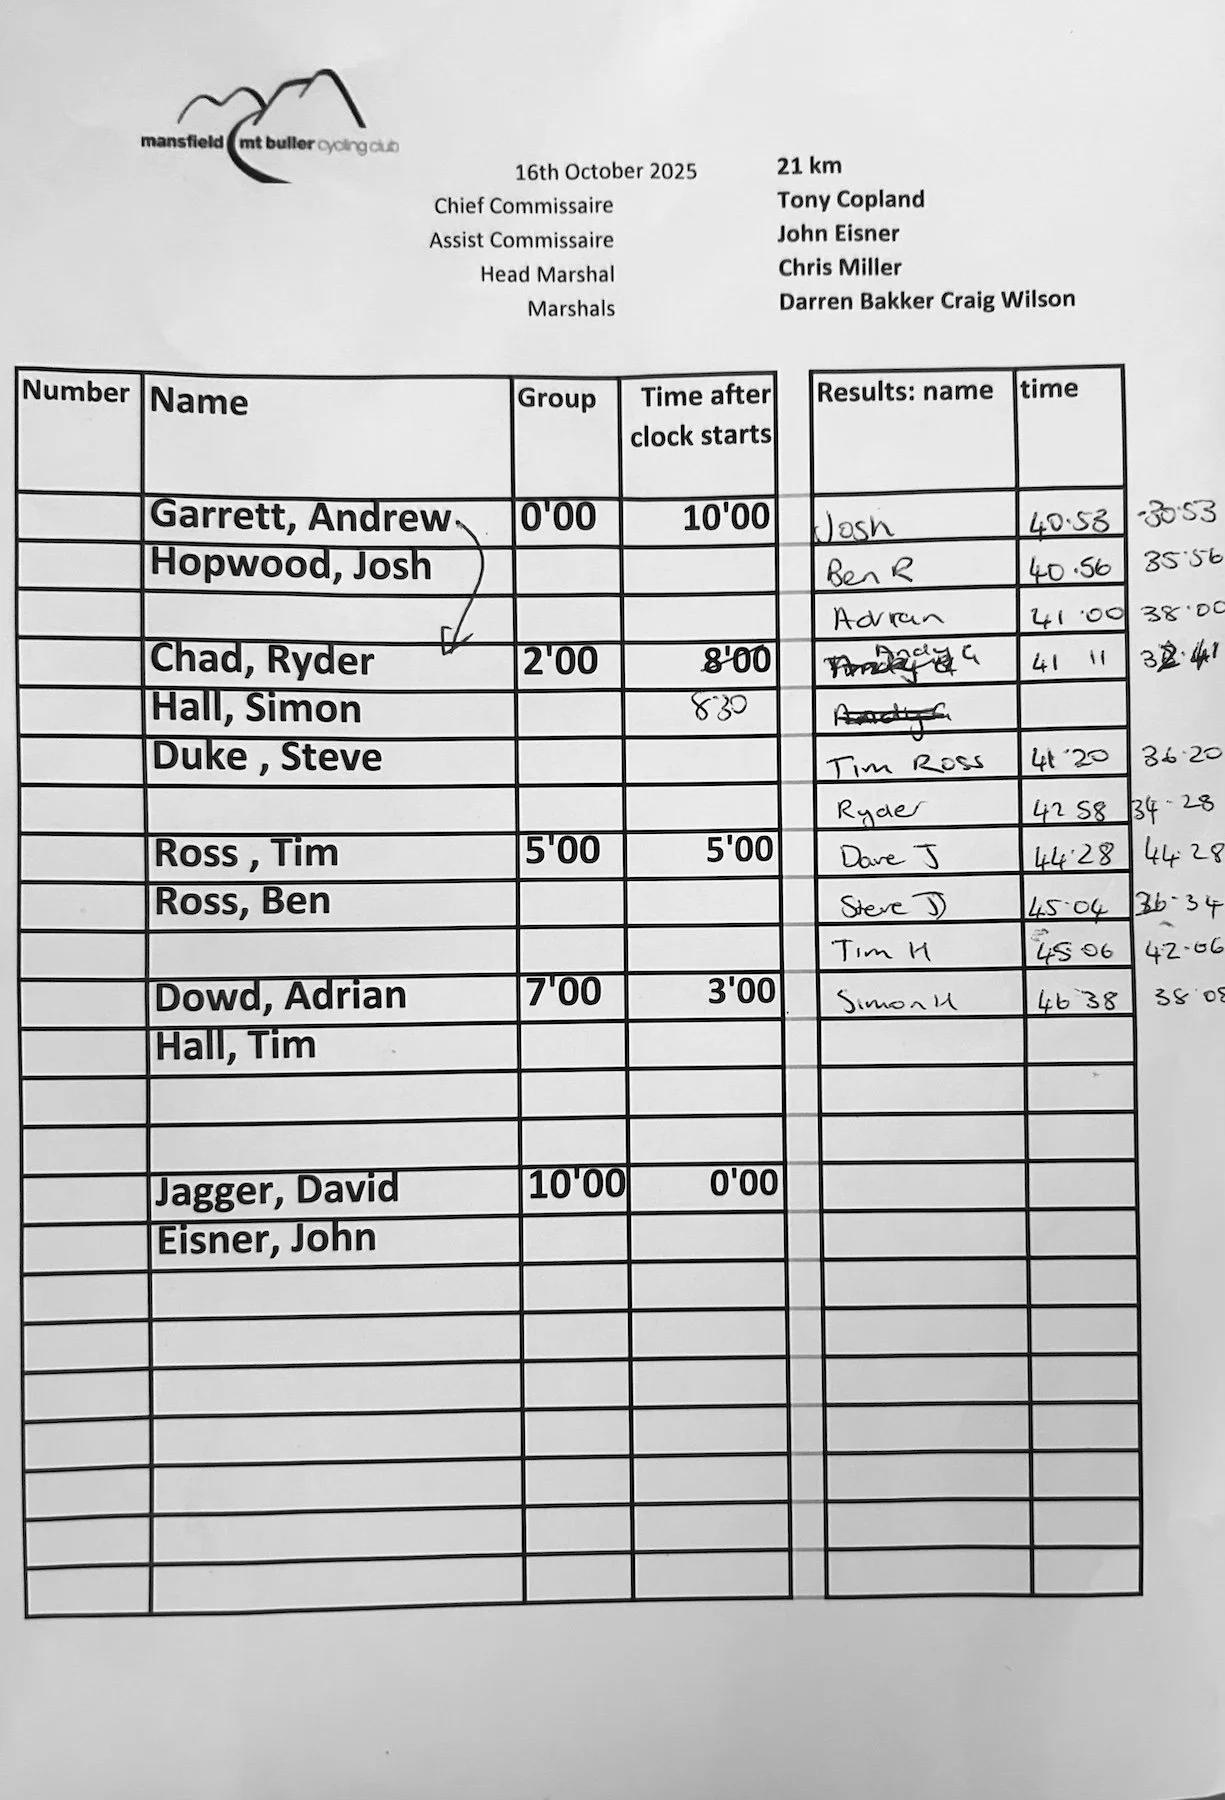 mansfield mt buller cycling club
16th October 2025 21 km
Chief Commissaire Tony Copland
Assist Commissaire John Eisner
Head Marshal Chris Miller
Marshals Darren Bakker Craig Wilson
Number Name Group Time after clock starts Results: name time
Garrett, Andrew 0'00 10'00 Josh 40.53 -30.53
Hopwood, Josh Ben R 40.56 35.56
Adrian 41.00 38.00
Chad, Ryder 2'00 8'00 Andy G 41 11 32.41
Hall, Simon 8'30 Andy G
Duke , Steve Tim Ross 41.20 36.20
Ryder 42 58 34-28
Ross , Tim 5'00 5'00 Dave J 44.28 44.28
Ross, Ben Steve D 45.04 36-34
Tim H 45 06 42-06
Dowd, Adrian 7'00 3'00 Simon H 46 38 38.08
Hall, Tim
Jagger, David 10'00 0'00
Eisner, John